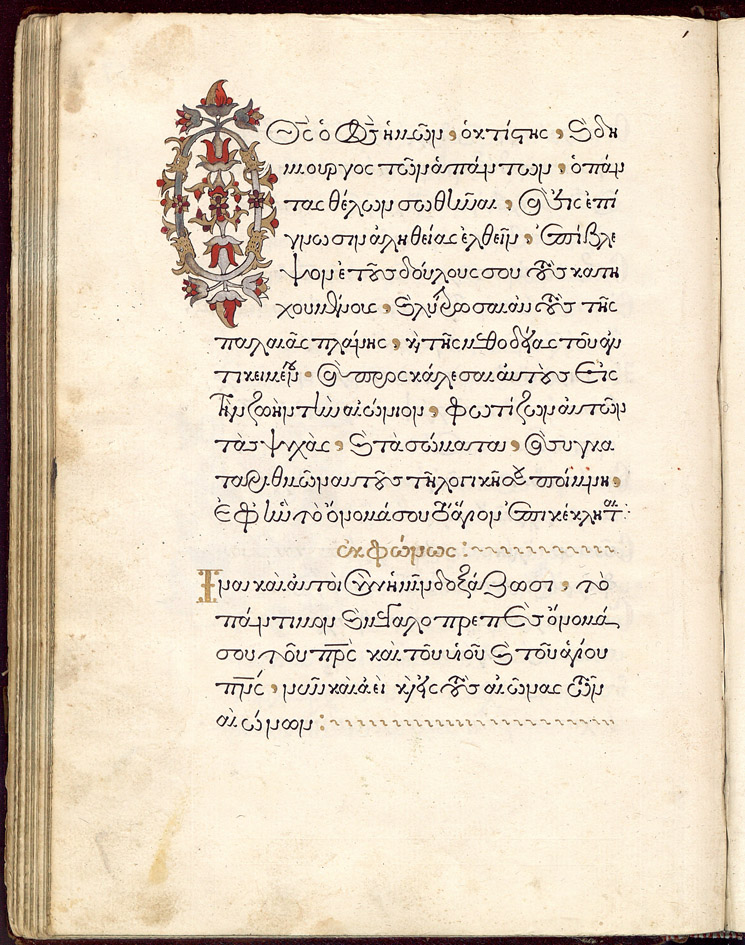 Ὁ Θς ὁ Θς ἡμῶν, ὁ κτίστης, καὶ δη
μιουργος τῶν ἁπάντων, ὁ πάν
τας θέλων σωθῆναι, καὶ εἰς ἐπί
γνωσιν ἀληθείας ἐλθεῖν, ἐπίβλε
ψον ἐπὶ τοὺς δούλους σου τοὺς κατη
χουμένους, καὶ λύτρωσαι αὐτοὺς τῆς
παλαιᾶς πλάνης, καὶ τῆς μεθοδείας τοῦ ἀν
τικειμένου. καὶ προσκάλεσαι αὐτοὺς εἰς
τὴν ζωὴν τὴν αἰώνιον, φωτίζων αὐτῶν
τὰς ψυχὰς, καὶ τὰ σώματα, καὶ συγκα
ταριθμῶν αὐτοὺς τῇ λογικῇ σου ποίμνῃ,
ἐφ ἣν τὸ ὄνομά σου τὸ ἅγιον ἐπικέκληται:
ἐκφώνως:
Ἵνα καὶ αὐτοὶ σὺν ἡμῖν δοξάζωσι, τὸ
πάντιμον καὶ μεγαλοπρεπὲς ὄνομά
σου τοῦ πρς καὶ τοῦ υἱοῦ καὶ τοῦ ἁγίου
πνς, νῦν καὶ ἀεὶ καὶ εἰς τοὺς αἰῶνας τῶν
αἰώνων: